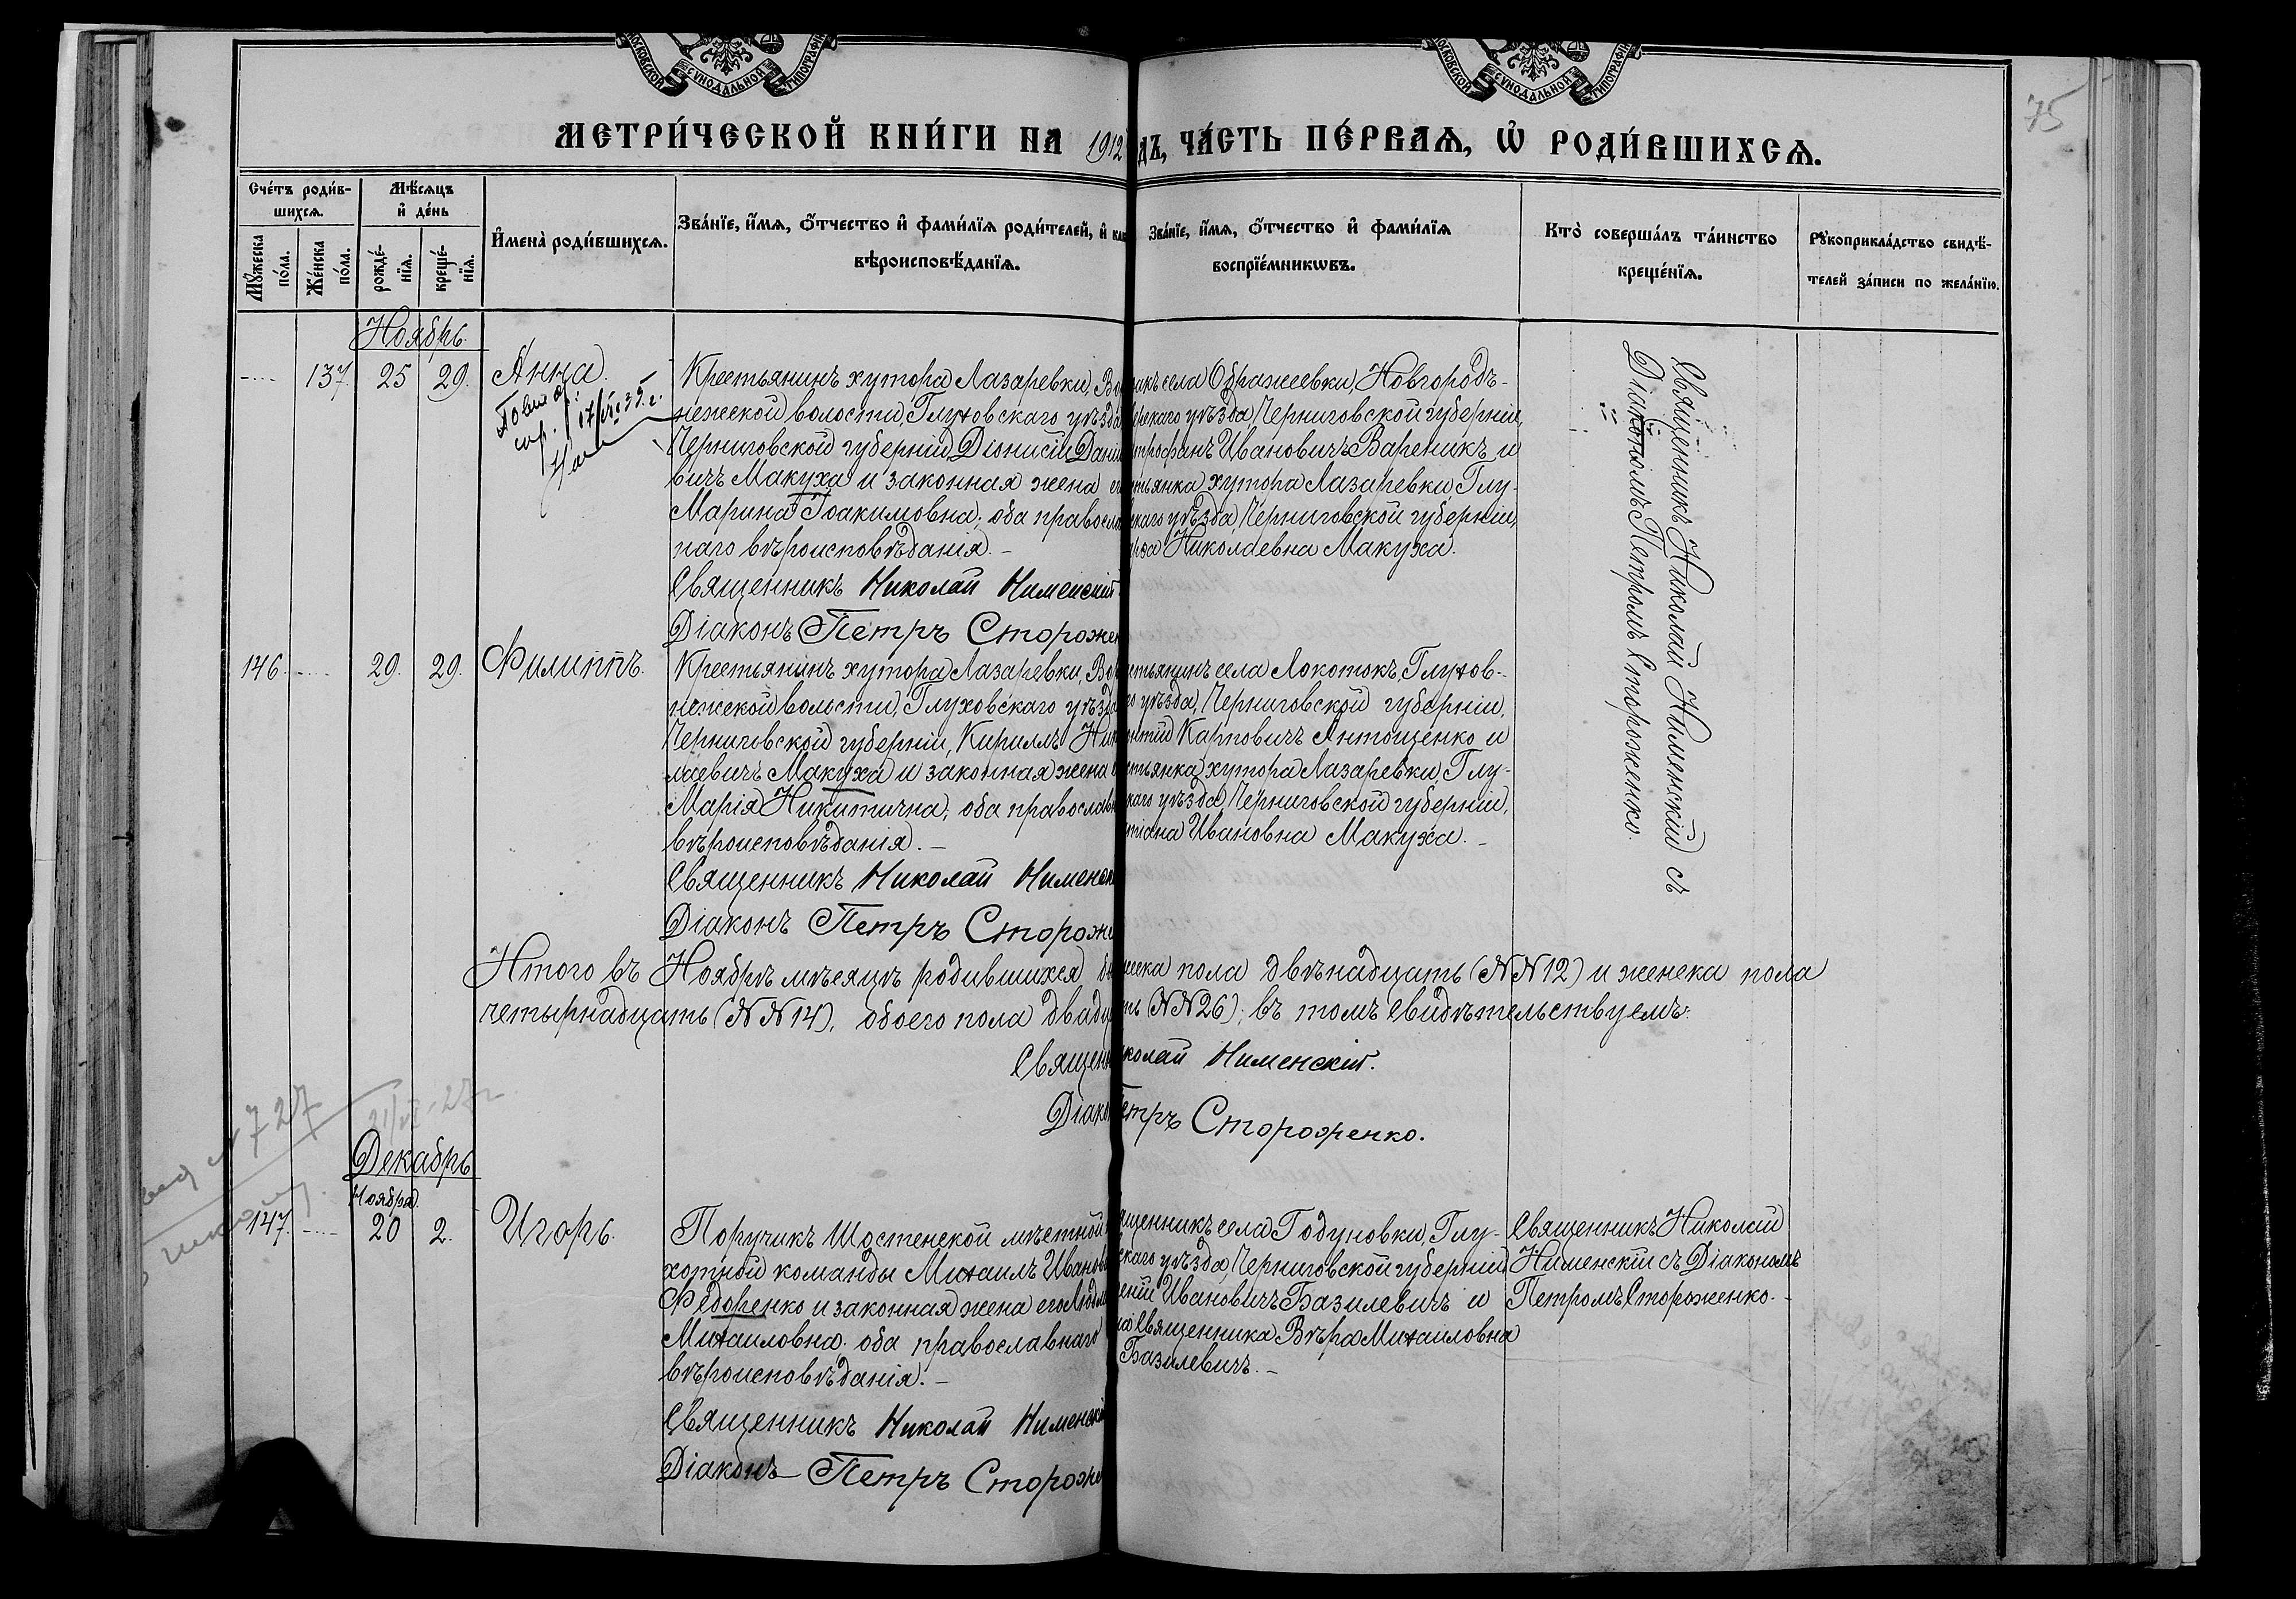 МОСКОВСКОЙ СѴНОДАЛЬНОЙ ТИПОГРАФІ
МОСКОВСКОЙ СѴНОДАЛЬНОЙ ТИПОГРАФІ
75
МЕТРИ́ЧЕСКОЙ КНИ́ГИ НА 1912 ДЪ, ЧА́СТЬ ПЕ́РВАѦ, Ѡ҆ РОДИ́ВШИХСѦ.
Сче́тъ роди́в-
шихсѧ.
Мꙋ́жеска по́ла.
Же́нска по́ла.
Мѣ́сѧцъ
и҆ де́нь
рожде́-
нїѧ.
креще́-
нїѧ.
И҆мена̀ роди́вшихсѧ.
Зва́нїе, и҆́мѧ, ѻ҆́тчество и҆ фами́лїѧ роди́телей, и҆ как
вѣроисповѣ́данїѧ.
Зва́нїе, и҆́мѧ, ѻ҆́тчество и҆ фами́лїѧ
воспрїе́мникѡвъ.
Кто̀ соверша́лъ та́инство
креще́нїѧ.
Рꙋкоприкла́дство свидѣ́-
телей за́писи по жела́нїю.
Ноябрь.
137. 25 29. Анна.
17/VI 35 г.
Крестьянинъ хутора Лазаревки, Во
нежской волости, Глуховскаго уѣзда
Черниговской губерніи Діонисій Дани
вичъ Макуха и законная жена е
Марина Іоакимовна; оба правосла
наго вѣроисповѣданія. –
Священникъ Николай Нименскій
Діаконъ Петръ Стороже
акъ села Ображеевки, Новгородъ-
верскаго уѣзда, Черниговской губерніи,
трофанъ Ивановичъ Вареникъ и
стьянка хутора Лазаревки, Глу-
скаго уѣзда, Черниговской губерніи,
Николаевна Макуха.
Священникъ Николай Нименскій съ
Діакономъ Петромъ Стороженко.
146. 29. 29. Филиппъ.
Крестьянинъ хутора Лазаревки, Во
нежской волости, Глуховскаго уѣзда
Черниговской губерніи, Кириллъ Ник
лаевичъ Макуха и законная жена
Марія Никитична; оба православн
вѣроисповѣданія. –
Священникъ Николай Нименск
Діаконъ Петръ Стороже
стьянинъ села Локотокъ, Глухов-
го уѣзда, Черниговской губерніи,
нтій Карповичъ Антощенко и
стьянка хутора Лазаревки, Глу-
скаго уѣзда, Черниговской губерніи,
тіана Ивановна Макуха. –
Итого въ Ноябрѣ мѣсяцѣ родившихся было жеска пола двѣнадцать (№№ 12) и женска пола
четырнадцать (№№ 14), обоего пола двадц ть (№№ 26); въ томъ свидѣтельствуемъ:
Священн колай Нименскій.
Діако Петръ Стороженко.
727
21/VI-27 г
Декабрь
Ноября.
147. 20 2. Игорь.
Поручикъ Шостенской мѣстной
хотной команды Михаилъ Иванов
Федоренко и законная жена его Людм
Михаиловна. оба православнаго
вѣроисповѣданія. –
Священникъ Николай Нименскі
Діаконъ Петръ Стороже
ященникъ села Годуновки, Глу-
скаго уѣзда, Черниговской губерніи
еній Ивановичъ Базилевичъ и
на Священника Вѣра Михаиловна
Базилевичъ. –
Священникъ Николай
Нименскій съ Діакономъ
Петромъ Стороженко. –